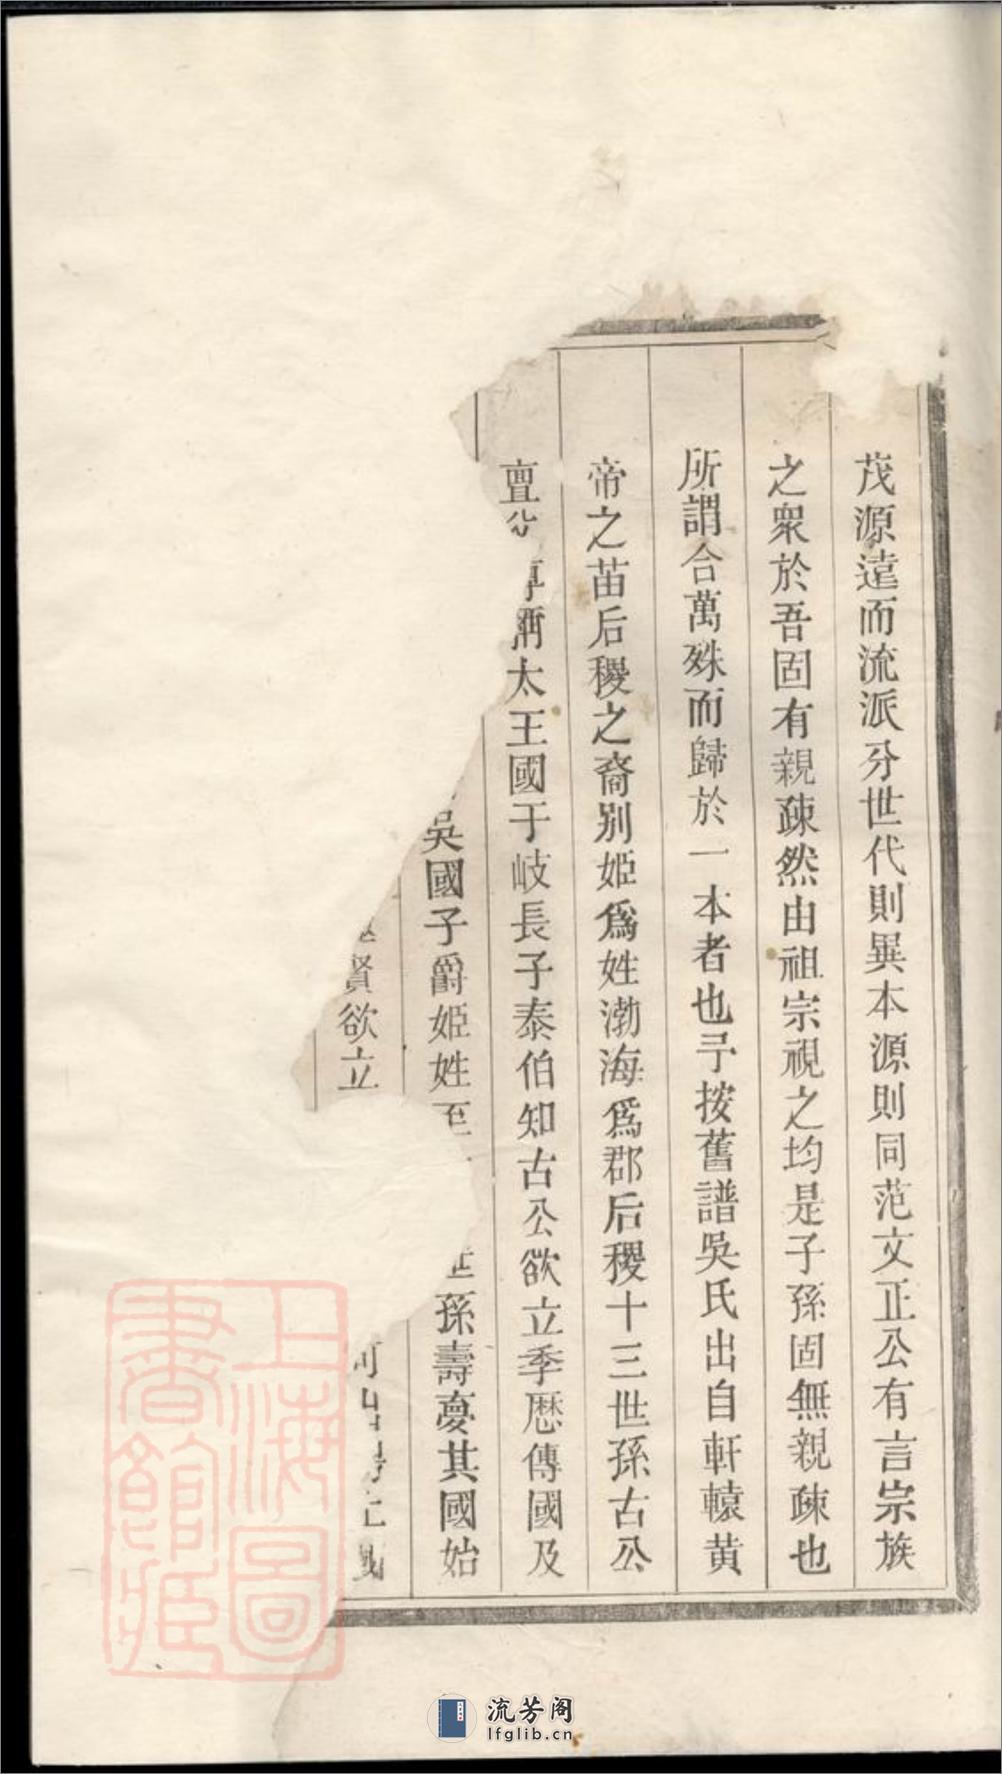 茂源遠而流派分世代則異本源則同范文正公有言宗族
之衆於吾固有親疎然由祖宗視之均是子孫固無親疎也
所謂合萬殊而歸於一本者也予按舊譜吳氏出自軒轅黃
帝之苗后稷之裔别姬爲姓渤海爲郡后稷十三世孫古公
亶父太王國于岐長子泰伯知古公欲立季厯傳國及
吳國子爵姬姓至世孫壽夢其國始
賢欲立
上海圖書館藏
流芳阁
lfglib.cn